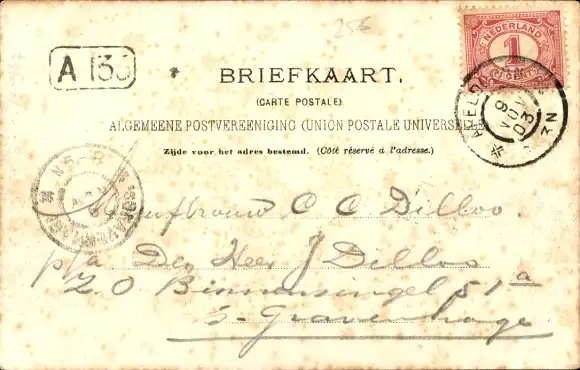 256
NEDERLAND
1
CENT
A 135
BRIEFKAART.
(CARTE POSTALE)
ALGEMEENE POSTVEREENIGING (UNION POSTALE UNIVERSELLE)
Zijde voor het adres bestemd. (Côté réservé à l'adresse.)
9 NOV 03
N 5-8
'SGRAVENHAGE
Mejufbrouw C C Dilloo.
p/a Den Heer J Dilloo
Z. O Binnensingel 51a
's-Gravenhage.